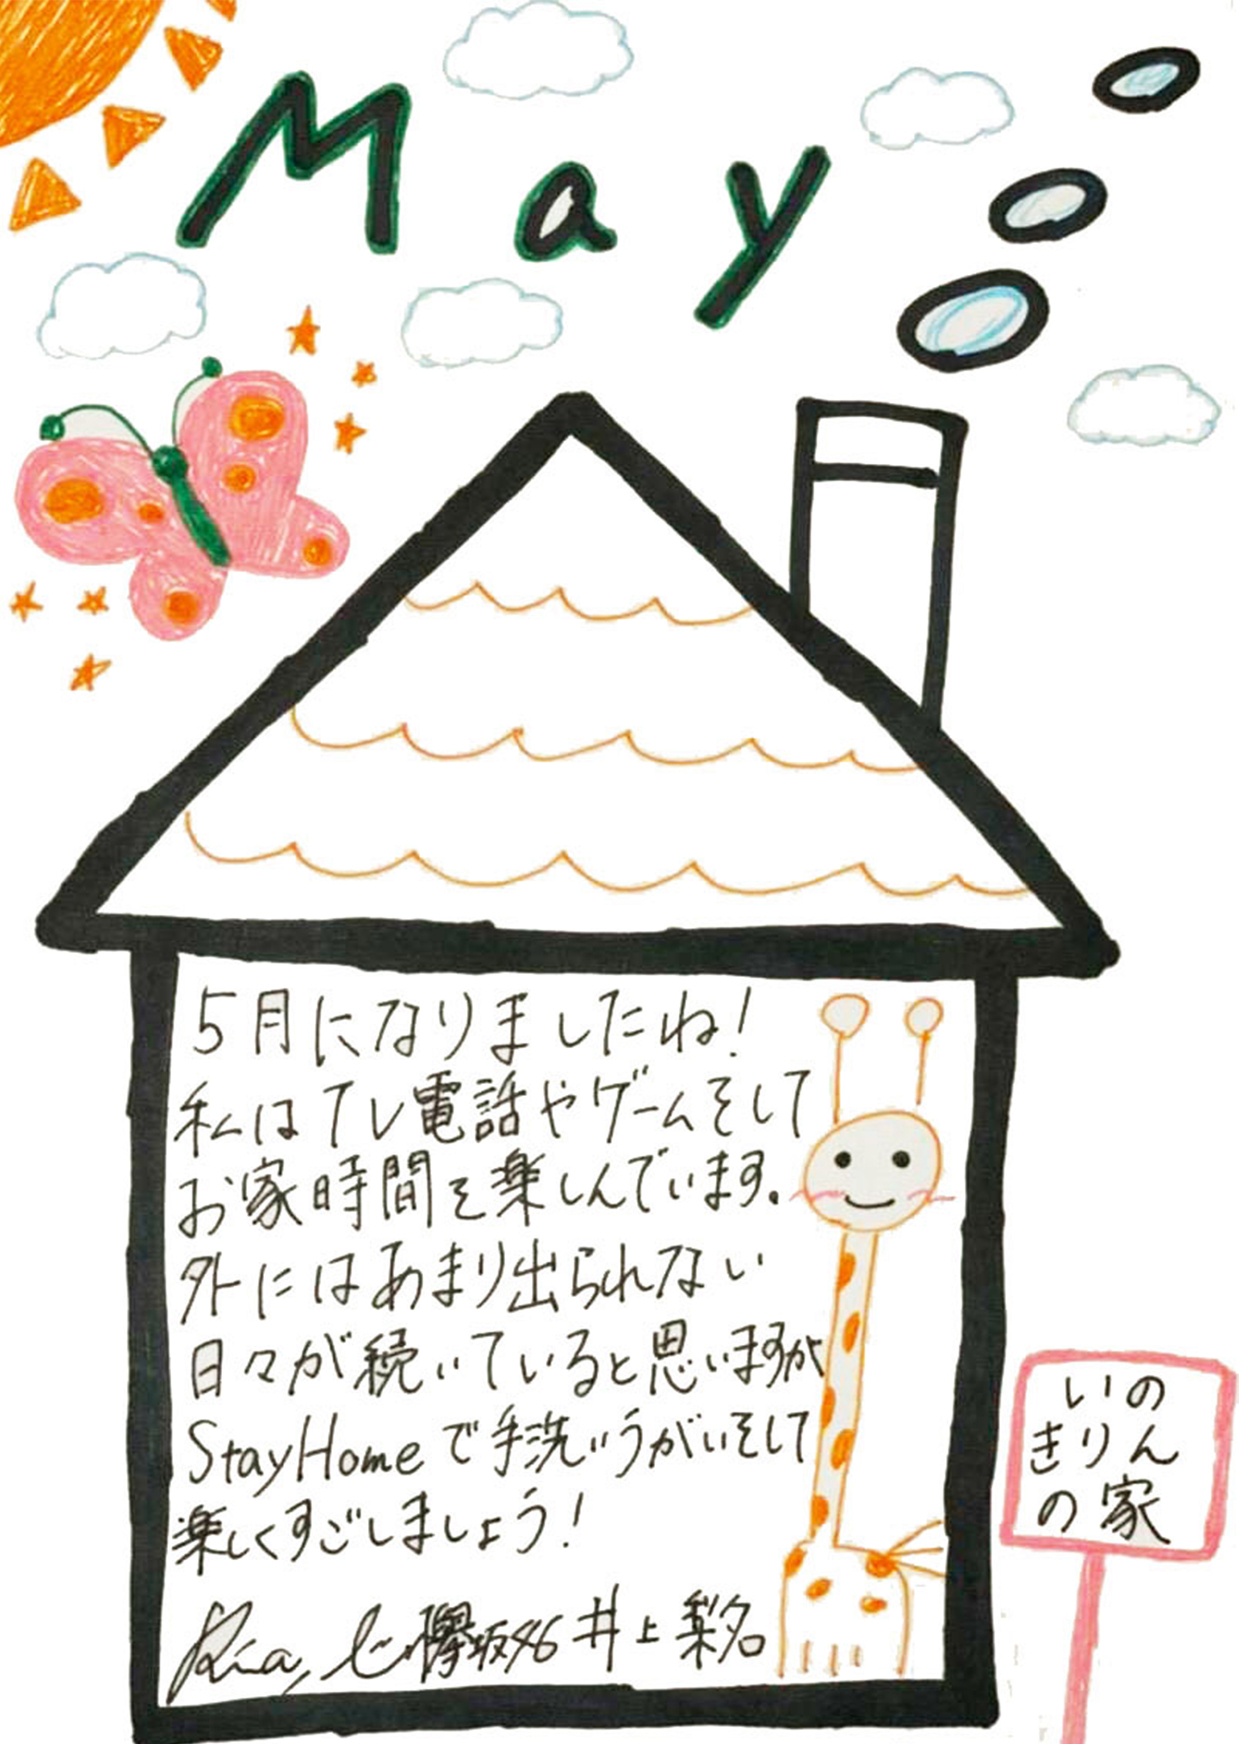 May
5月になりましたね!
私はTV電話やゲームそして
お家時間を楽しんでいます。
外にはあまり出られない
日々が続いていると思いますが
StayHomeで手洗いうがいそして
楽しくすごしましょう!
欅坂46 井上 梨名
いの
きりん
の家